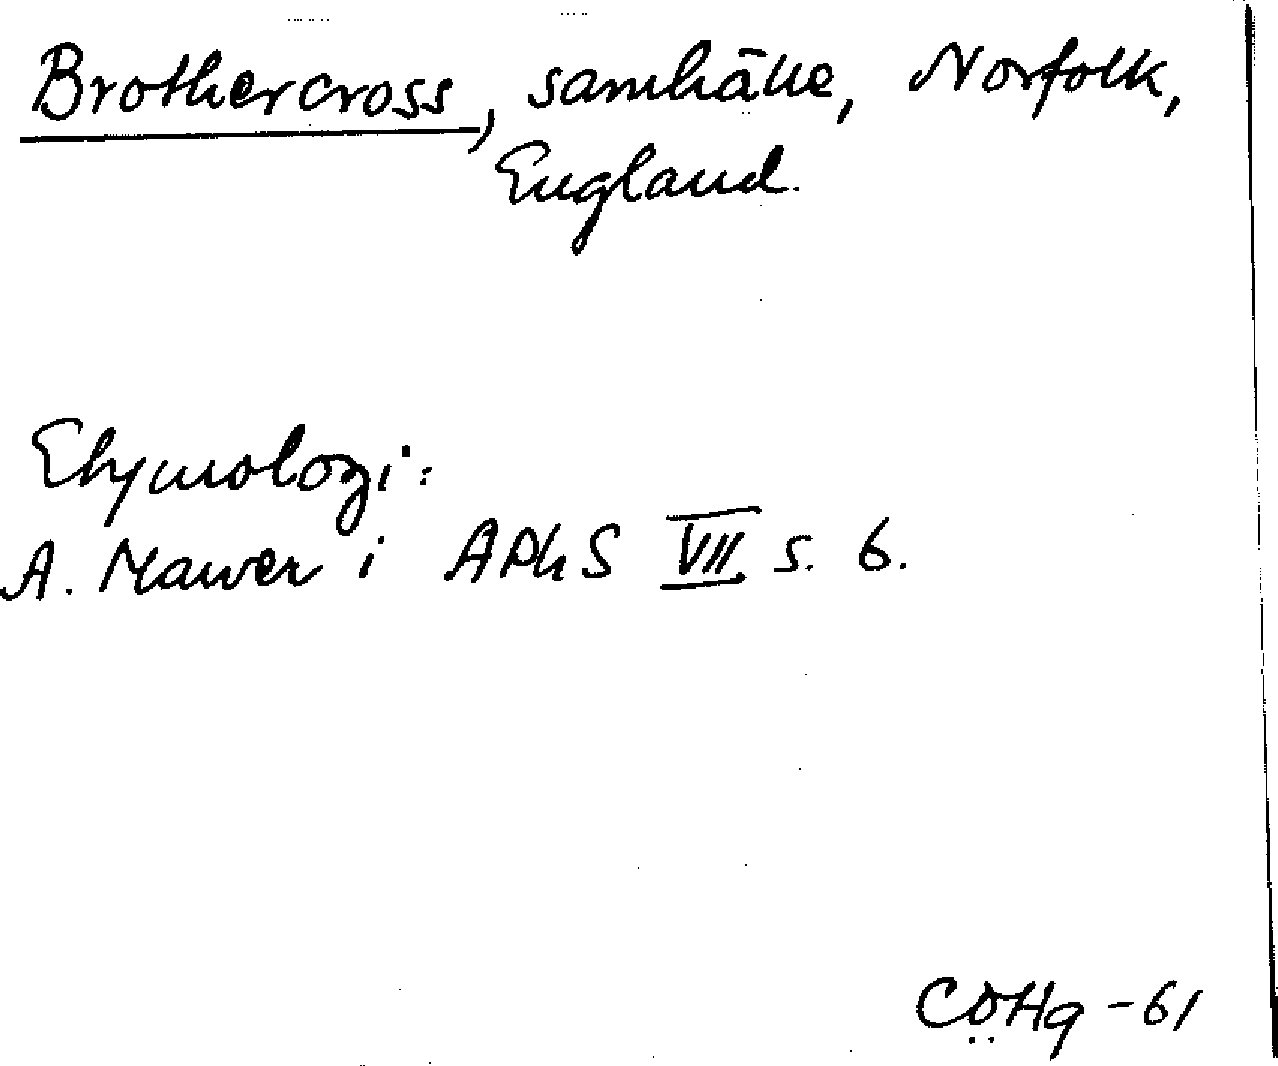 Brothercross, samhälle, Norfolk,
England.
Etymologi:
A. Mawer i APhS VII s. 6.
CÖHg -61